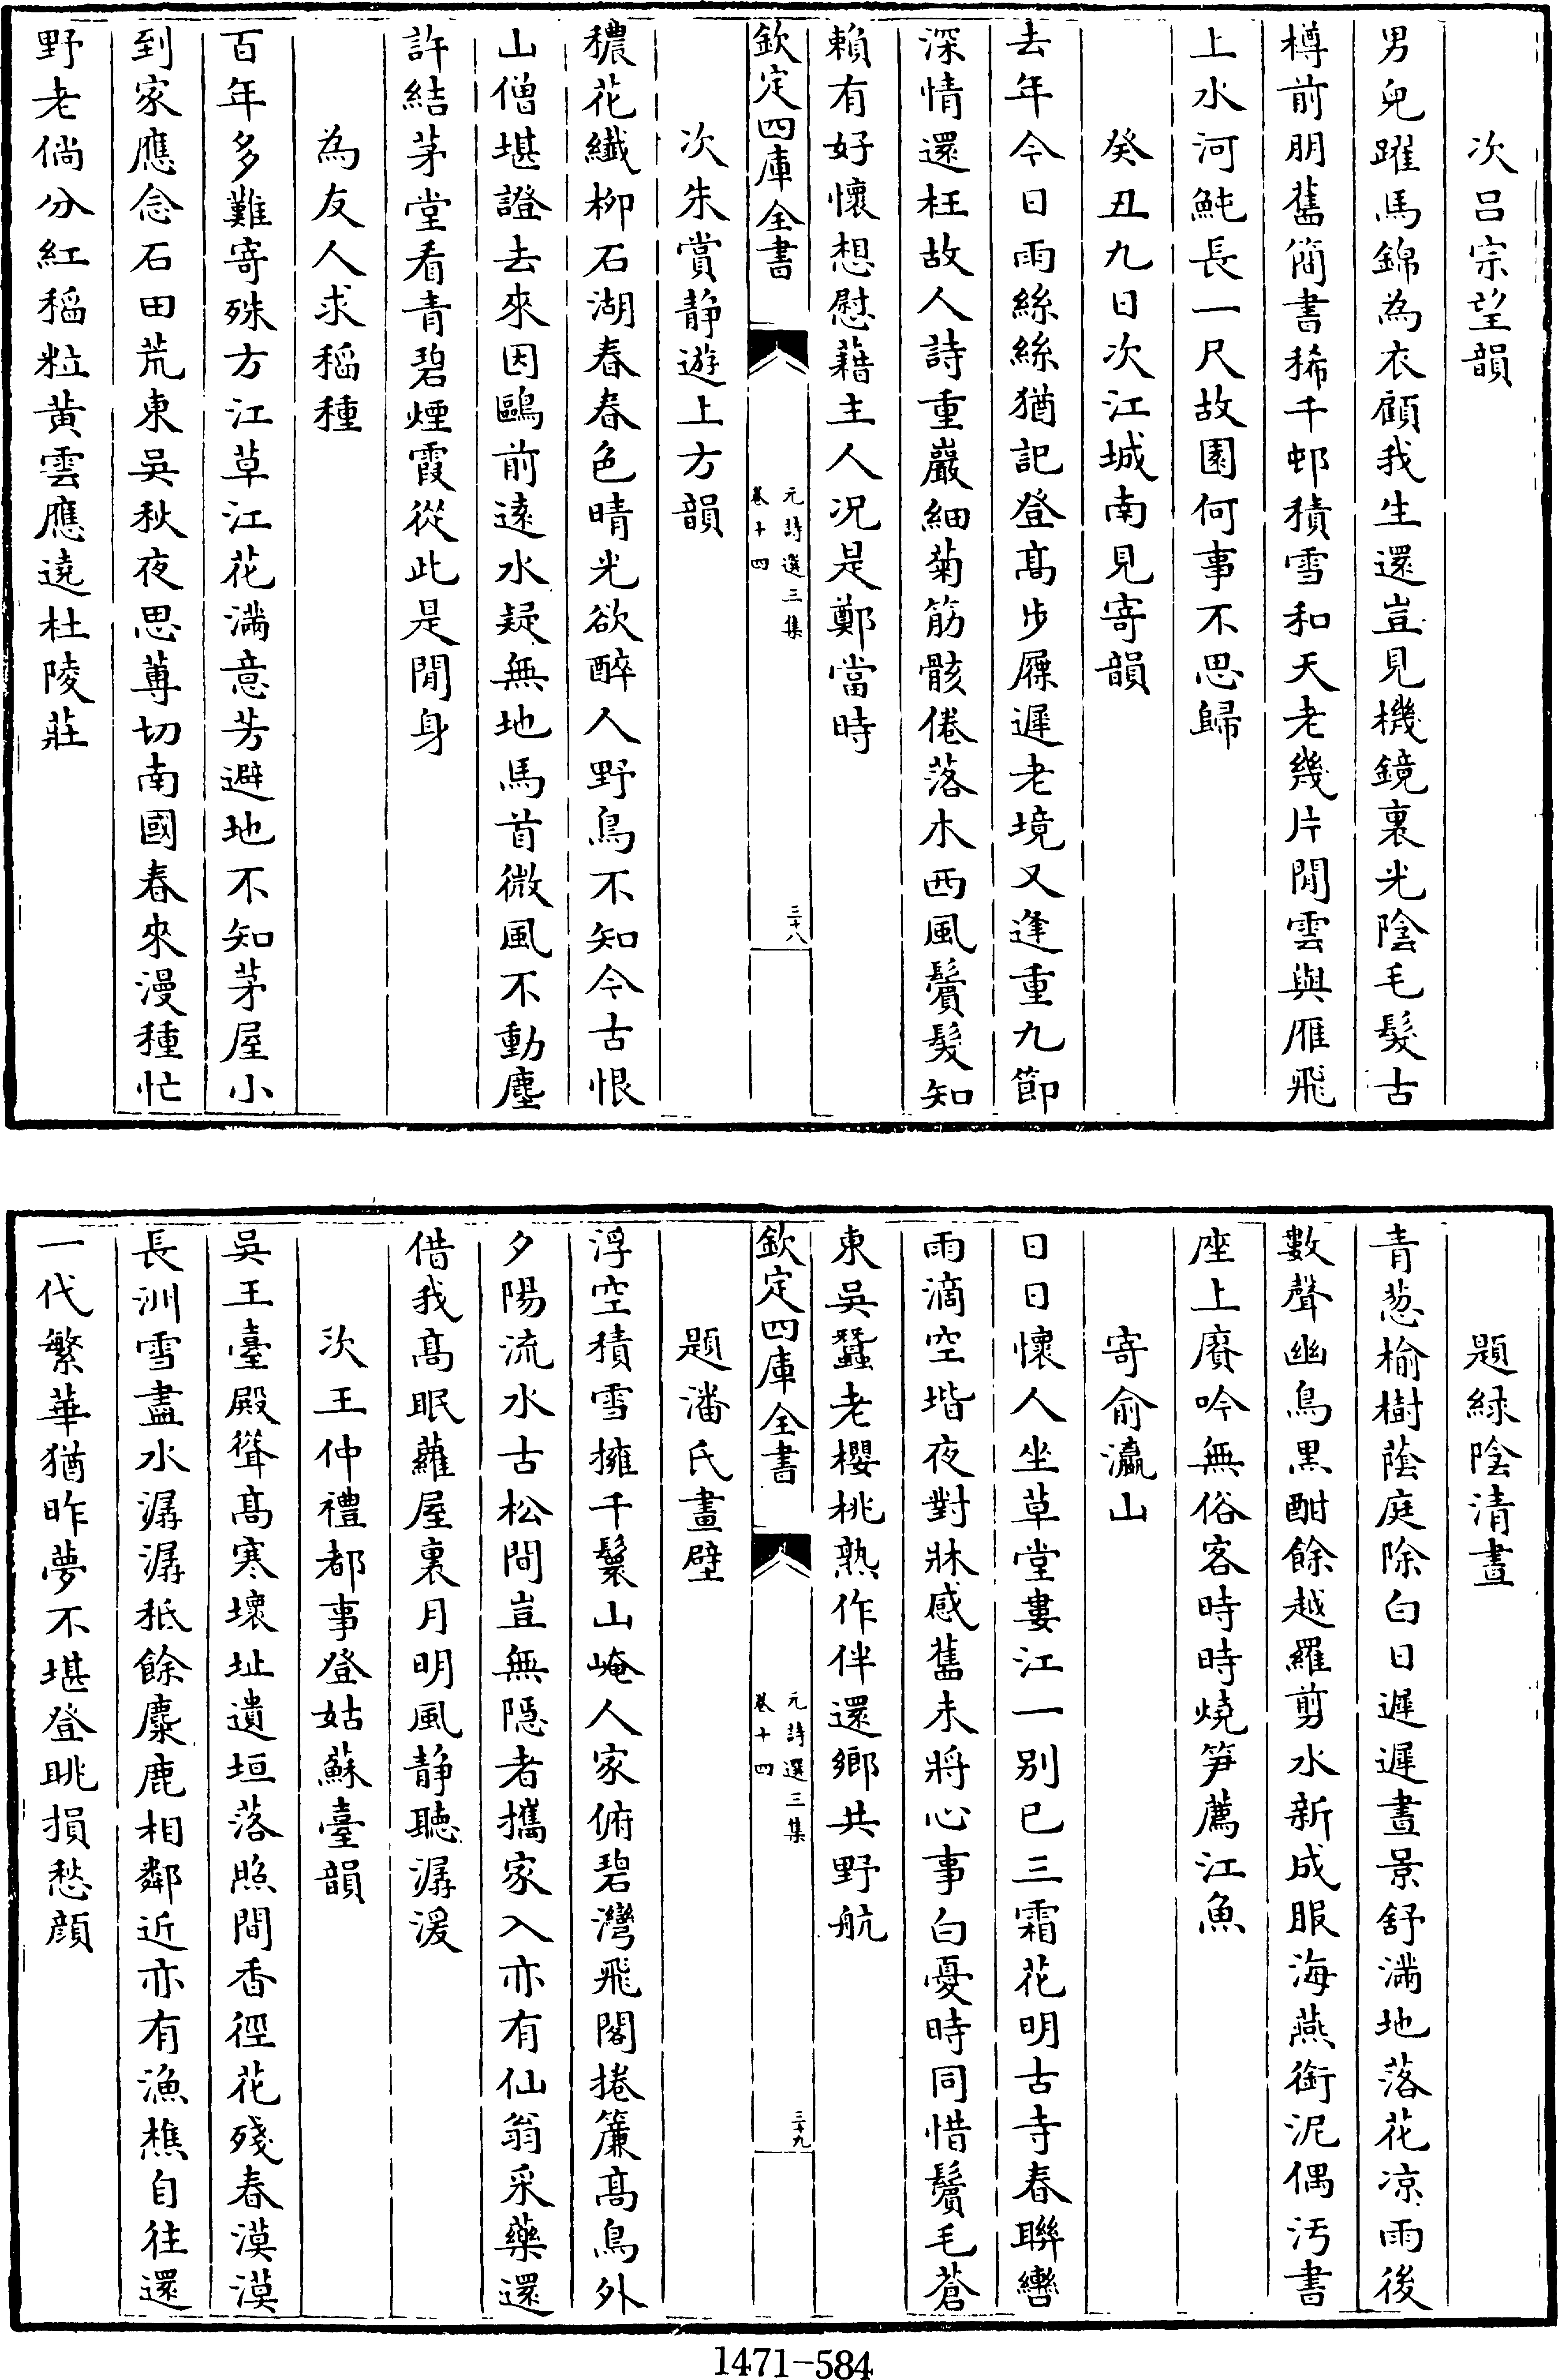 次呂宗望韻
男兒躍馬錦為衣顧我生還豈見機鏡裏光陰毛髮古
樽前朋舊簡書稀千邨積雪和天老幾片閒雲與雁飛
上水河魨長一尺故園何事不思歸
癸丑九日次江城南見寄韻
去年今日雨絲絲猶記登髙步屧遲老境又逢重九節
深情還枉故人詩重巖細菊筋骸倦落木西風鬢髮知
賴有好懷想慰藉主人況是鄭當時
欽定四庫全書
元詩選三集
卷十四
三十八
次朱賞静遊上方韻
穠花纖柳石湖春春色晴光欲醉人野鳥不知今古恨
山僧堪證去來因鷗前遠水疑無地馬首微風不動塵
許結茅堂看青碧煙霞從此是閒身
為友人求稻種
百年多難寄殊方江草江花滿意芳避地不知茅屋小
到家應念石田荒東吳秋夜思蓴切南國春來漫種忙
野老倘分紅稻粒黃雲應遶杜陵莊
題緑陰清晝
青葱榆樹蔭庭除白日遲遲晝景舒滿地落花凉雨後
數聲幽鳥黒酣餘越羅剪水新成服海燕銜泥偶汚書
座上賡吟無俗客時時燒筍薦江魚
寄俞瀛山
日日懷人坐草堂婁江一别已三霜花明古寺春聯轡
雨滴空堦夜對牀感舊未將心事白憂時同惜鬢毛蒼
東吳蠶老櫻桃熟作伴還鄉共野航
欽定四庫全書
元詩選三集
卷十四
三十九
題潘氏畫壁
浮空積雪擁千鬟山崦人家俯碧灣飛閣捲簾髙鳥外
夕陽流水古松間豈無隠者攜家入亦有仙翁采藥還
借我髙眠蘿屋裏月明風静聽潺湲
次王仲禮都事登姑蘇臺韻
吳王臺殿聳髙寒壞址遺垣落照間香徑花殘春漠漠
長洲雪盡水潺潺秪餘麋鹿相鄰近亦有漁樵自往還
一代繁華猶昨夢不堪登眺損愁顔
1471-584